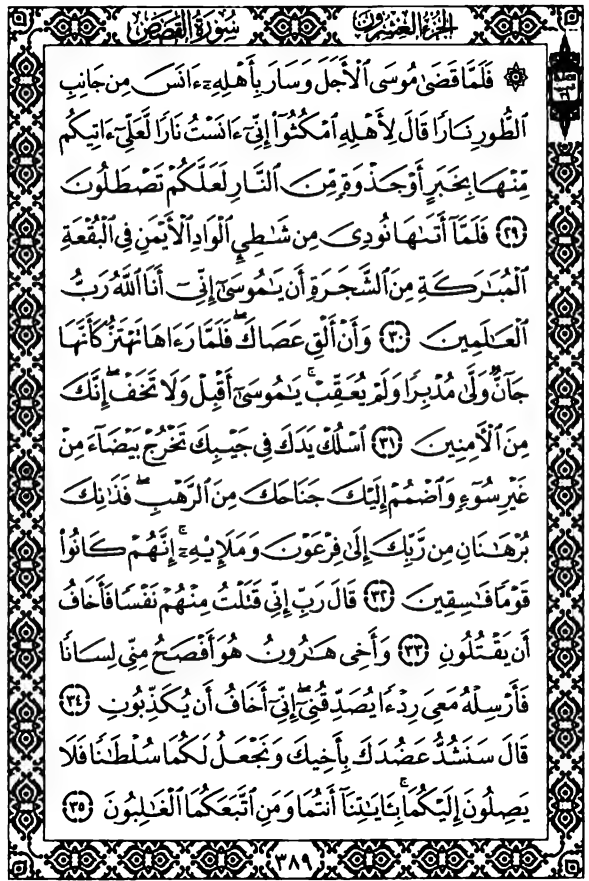 سُورَةُ القَصَصِ الجُزْءُ العِشْرُونَ
۞ فَلَمَّا قَضَىٰ مُوسَى ٱلْأَجَلَ وَسَارَ بِأَهْلِهِۦٓ ءَانَسَ مِن جَانِبِ
ٱلطُّورِ نَارًا قَالَ لِأَهْلِهِ ٱمْكُثُوٓا۟ إِنِّىٓ ءَانَسْتُ نَارًا لَّعَلِّىٓ ءَاتِيكُم
مِّنْهَا بِخَبَرٍ أَوْ جَذْوَةٍ مِّنَ ٱلنَّارِ لَعَلَّكُمْ تَصْطَلُونَ
﴿٢٩﴾ فَلَمَّآ أَتَىٰهَا نُودِىَ مِن شَـٰطِئِ ٱلْوَادِ ٱلْأَيْمَنِ فِى ٱلْبُقْعَةِ
ٱلْمُبَـٰرَكَةِ مِنَ ٱلشَّجَرَةِ أَن يَـٰمُوسَىٰٓ إِنِّىٓ أَنَا ٱللَّهُ رَبُّ
ٱلْعَـٰلَمِينَ ﴿٣٠﴾ وَأَنْ أَلْقِ عَصَاكَ ۖ فَلَمَّا رَءَاهَا تَهْتَزُّ كَأَنَّهَا
جَآنٌّ وَلَّىٰ مُدْبِرًا وَلَمْ يُعَقِّبْ ۚ يَـٰمُوسَىٰٓ أَقْبِلْ وَلَا تَخَفْ ۖ إِنَّكَ
مِنَ ٱلْـَٔامِنِينَ ﴿٣١﴾ ٱسْلُكْ يَدَكَ فِى جَيْبِكَ تَخْرُجْ بَيْضَآءَ مِنْ
غَيْرِ سُوٓءٍ وَٱضْمُمْ إِلَيْكَ جَنَاحَكَ مِنَ ٱلرَّهْبِ ۖ فَذَٰنِكَ
بُرْهَـٰنَانِ مِن رَّبِّكَ إِلَىٰ فِرْعَوْنَ وَمَلَإِي۟هِۦٓ ۚ إِنَّهُمْ كَانُوا۟
قَوْمًا فَـٰسِقِينَ ﴿٣٢﴾ قَالَ رَبِّ إِنِّى قَتَلْتُ مِنْهُمْ نَفْسًا فَأَخَافُ
أَن يَقْتُلُونِ ﴿٣٣﴾ وَأَخِى هَـٰرُونُ هُوَ أَفْصَحُ مِنِّى لِسَانًا
فَأَرْسِلْهُ مَعِىَ رِدْءًا يُصَدِّقُنِىٓ ۖ إِنِّىٓ أَخَافُ أَن يُكَذِّبُونِ ﴿٣٤﴾
قَالَ سَنَشُدُّ عَضُدَكَ بِأَخِيكَ وَنَجْعَلُ لَكُمَا سُلْطَـٰنًا فَلَا
يَصِلُونَ إِلَيْكُمَا ۚ بِـَٔايَـٰتِنَآ أَنتُمَا وَمَنِ ٱتَّبَعَكُمَا ٱلْغَـٰلِبُونَ ﴿٣٥﴾
٣٨٩